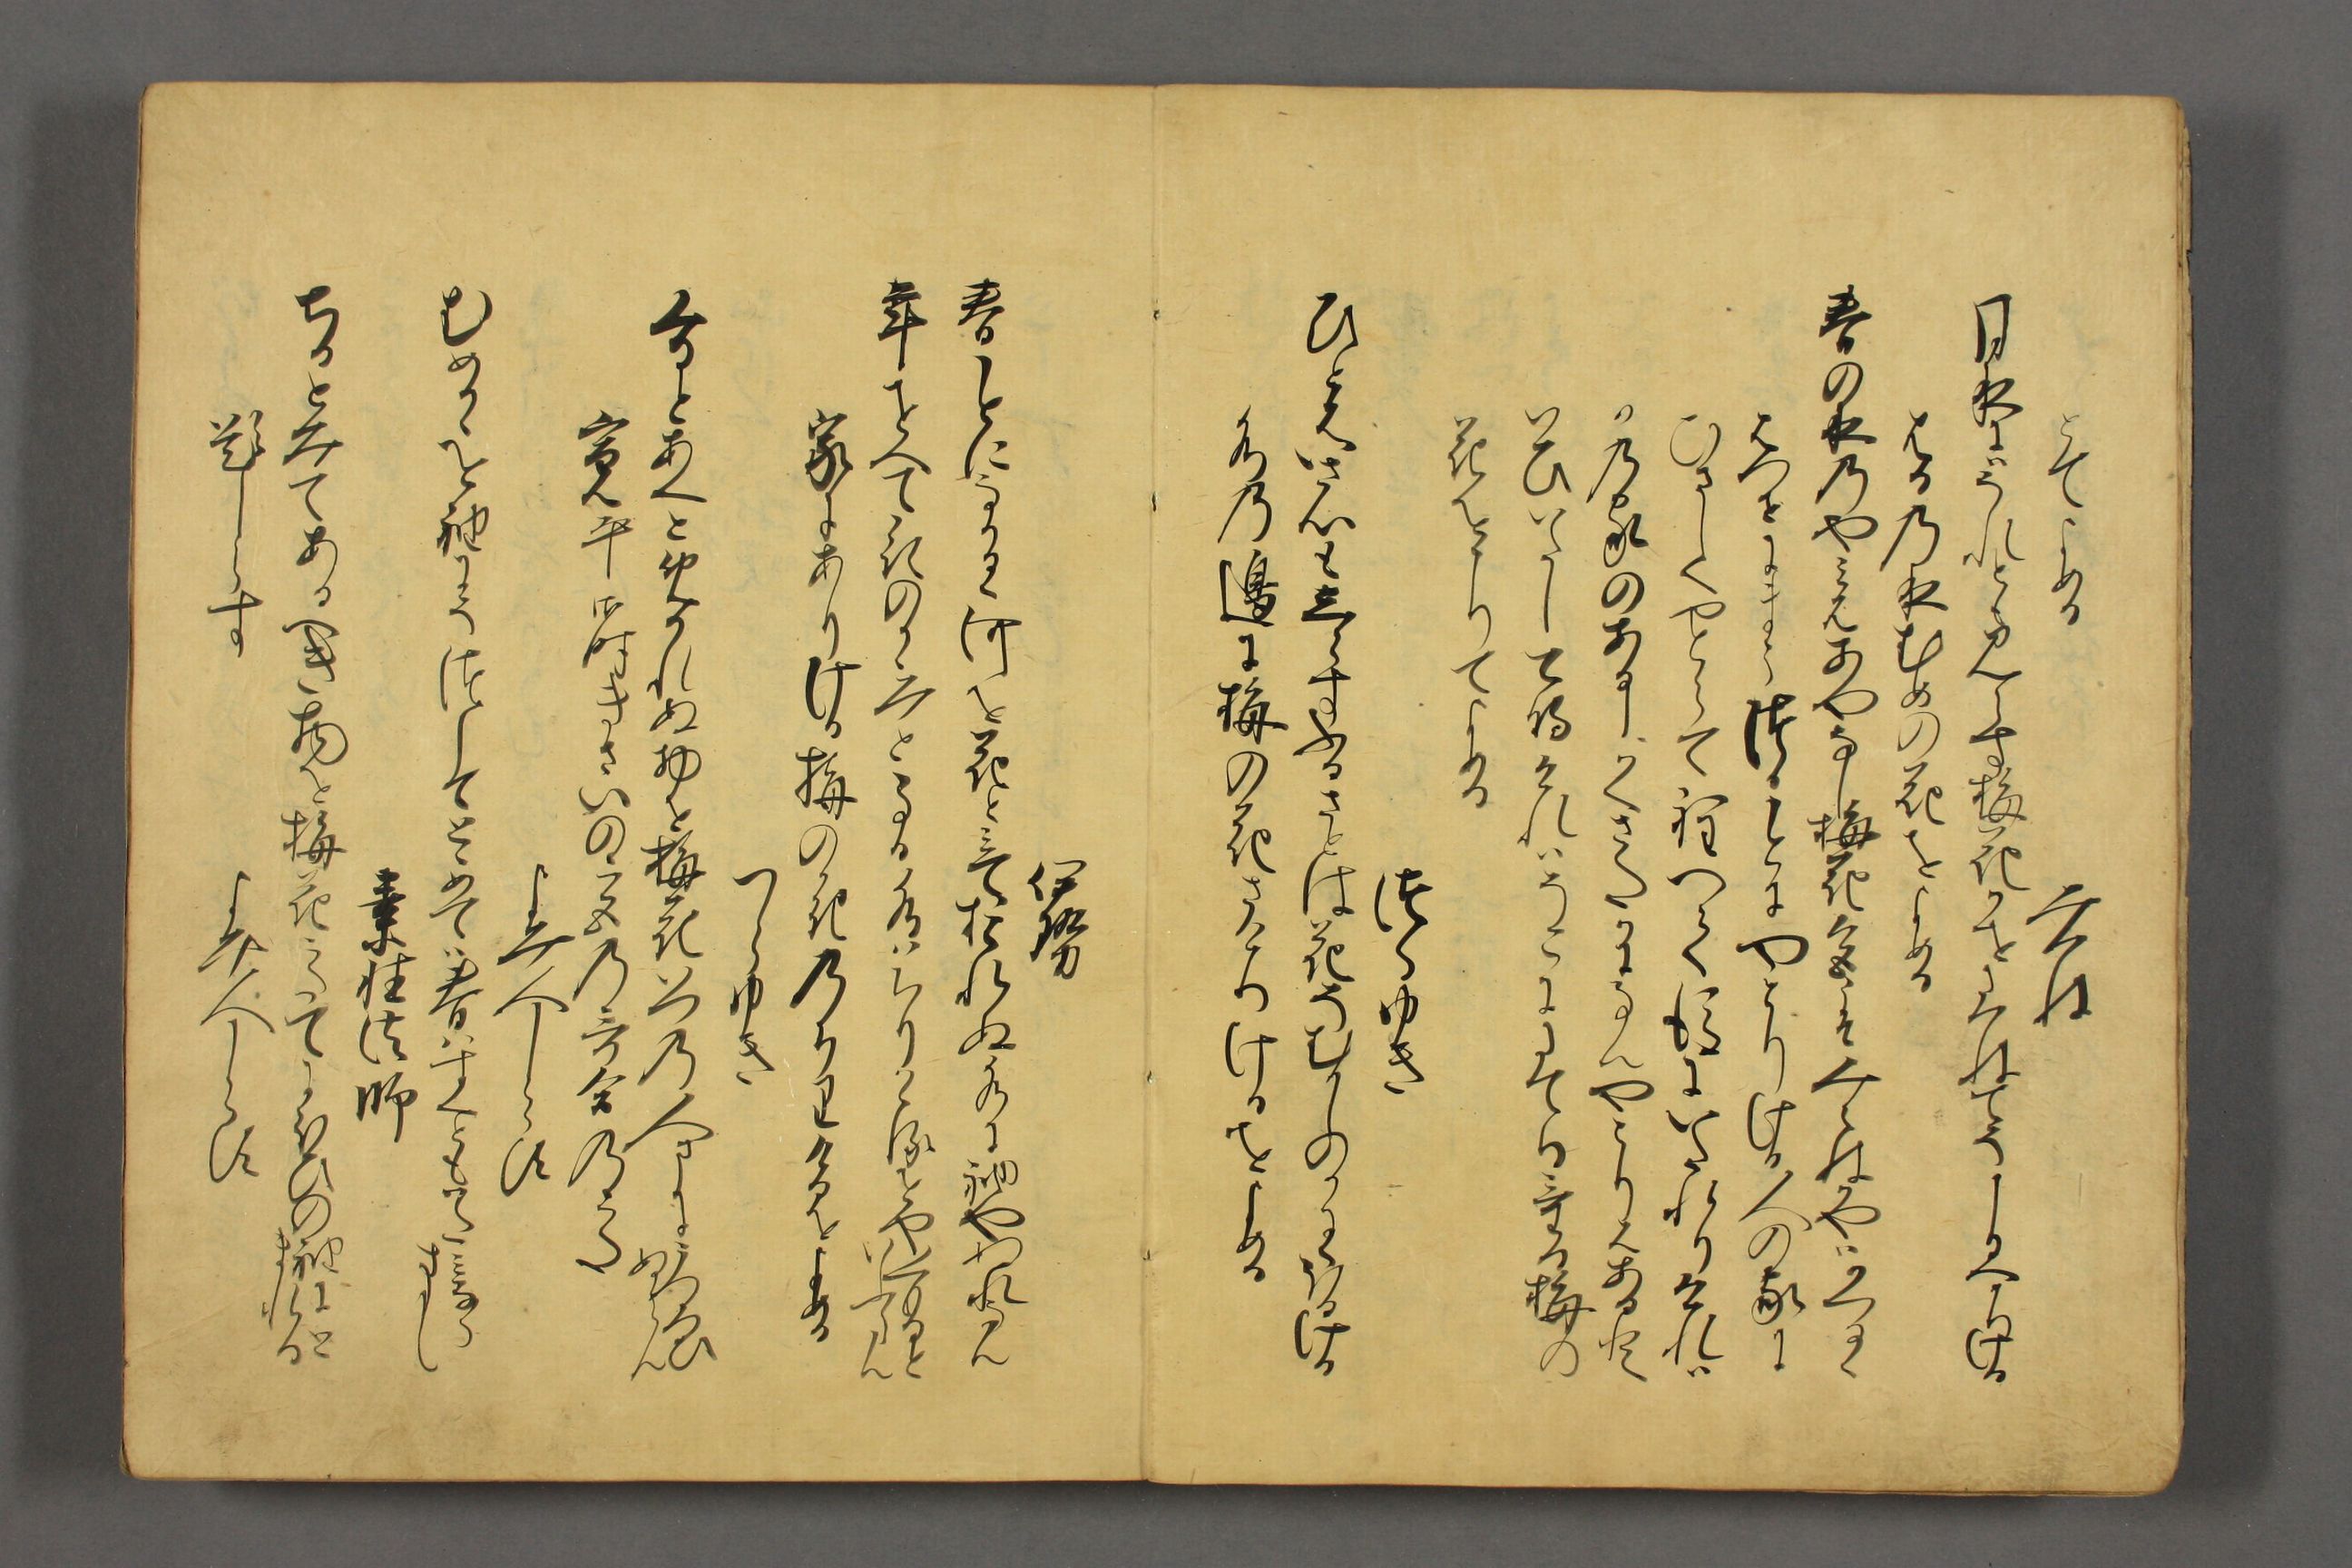 とてよめる
みつね
月夜にはそれともみえす梅花かをたつねてそしるへかりける
はるの夜むめの花をよめる
春の夜のやみはあやなし梅花色こそみえねかやはかくるゝ
はつせにまうつることにやとりける人の家に
ひさしくやとらて程へて後にいたれりけれは
かの家のあるしかくさたかになんやとりはあると
いひいたして侍けれはそこにたてりける梅の
花をおりてよめる
つらゆき
ひとはいさ心もしらすふるさとは花そむかしのかににほひける
水の邊に梅の花さけりけるをよめる
伊勢
春ことになかるゝ河を花とみておられぬ水に袖やぬれなん
年をへて花のかゝみとなる水はちりかゝるをやくもるといふらん
家にありける梅の花のちりけるをよめる
つらゆき
くるとあくとめかれぬ物を梅花いつの人まにうつろひぬらん
寛平御時きさいの宮の哥合のうた
よみ人しらす
むめかゝを袖にうつしてとゝめては春はすくともかたみならまし
素性法師
ちるとみてあるへき物を梅花うたてにほひの袖にとまれる
題しらす よみ人しらす